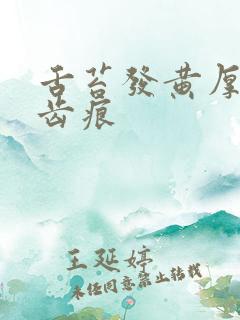 舌苔發黃厚
齒痕
王延婷
未经同意禁止转载